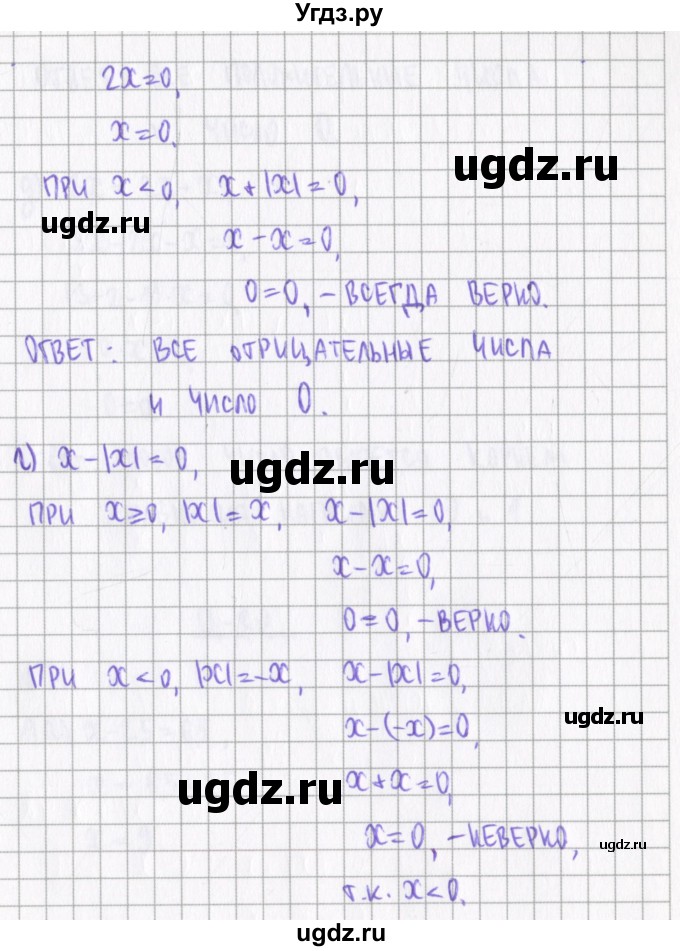 Угдз.ру
2x=0,
x=0.
ugdz.ru
ПРИ x<0, x+|x|=0,
ugdz.ru
x-x=0,
0=0, - ВСЕГДА ВЕРНО.
ОТВЕТ: ВСЕ ОТРИЦАТЕЛЬНЫЕ ЧИСЛА
И ЧИСЛО 0.
г) x-|x|=0,
ugdz.ru
ПРИ x≥0, |x|=x, x-|x|=0,
x-x=0,
0=0, - ВЕРНО.
ПРИ x<0, |x|=-x, x-|x|=0,
ugdz.ru
x-(-x)=0,
ugdz.ru
x+x=0,
x=0, - НЕВЕРНО,
ugdz.ru
т.к. x<0.
ugdz.ru